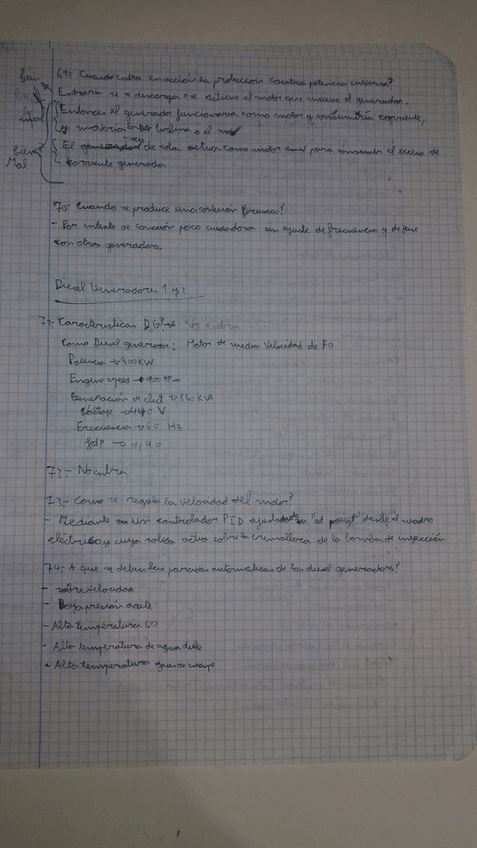 69- Cuando entra en acción la protección contra potencia inversa?
Entraría si se descarga o se detiene el motor que mueve el generador.
Entonces el generador funcionaría como motor y consumiría corriente,
y movería la turbina o el mot
El generador de cola actua como motor para consumir el exceso de
corriente generada
bien
igual
bien?
Mal
70- Cuando se produce una conexión brusca?
- Por intento de conexión poco cuidadosa sin ajuste de frecuencia y de fase
con otros generadores
Diesel Generadores 1 y 2
71- Características DG No entra
Como Diesel generador: Motor de media velocidad de FO
Potencia → 900 KW
Engine speed → 900 rpm
Generación de elect → 850 KVA
Voltaje → 440 V
Frecuencia → 60 Hz
fdP → 0,90
72- No entra
73- Como se regula la velocidad del motor?
- Mediante un controlador PID ajustado en "set point" desde el cuadro
eléctrico y cuya salida actua sobre la cremallera de la bomba de inyección
74- A que se deben las paradas automaticas de los diesel generadores?
- sobrevelocidad
- Baja presión aceite
- Alta temperatura GO
- Alta temperatura de agua dulce
- Alta temperatura gases de escape